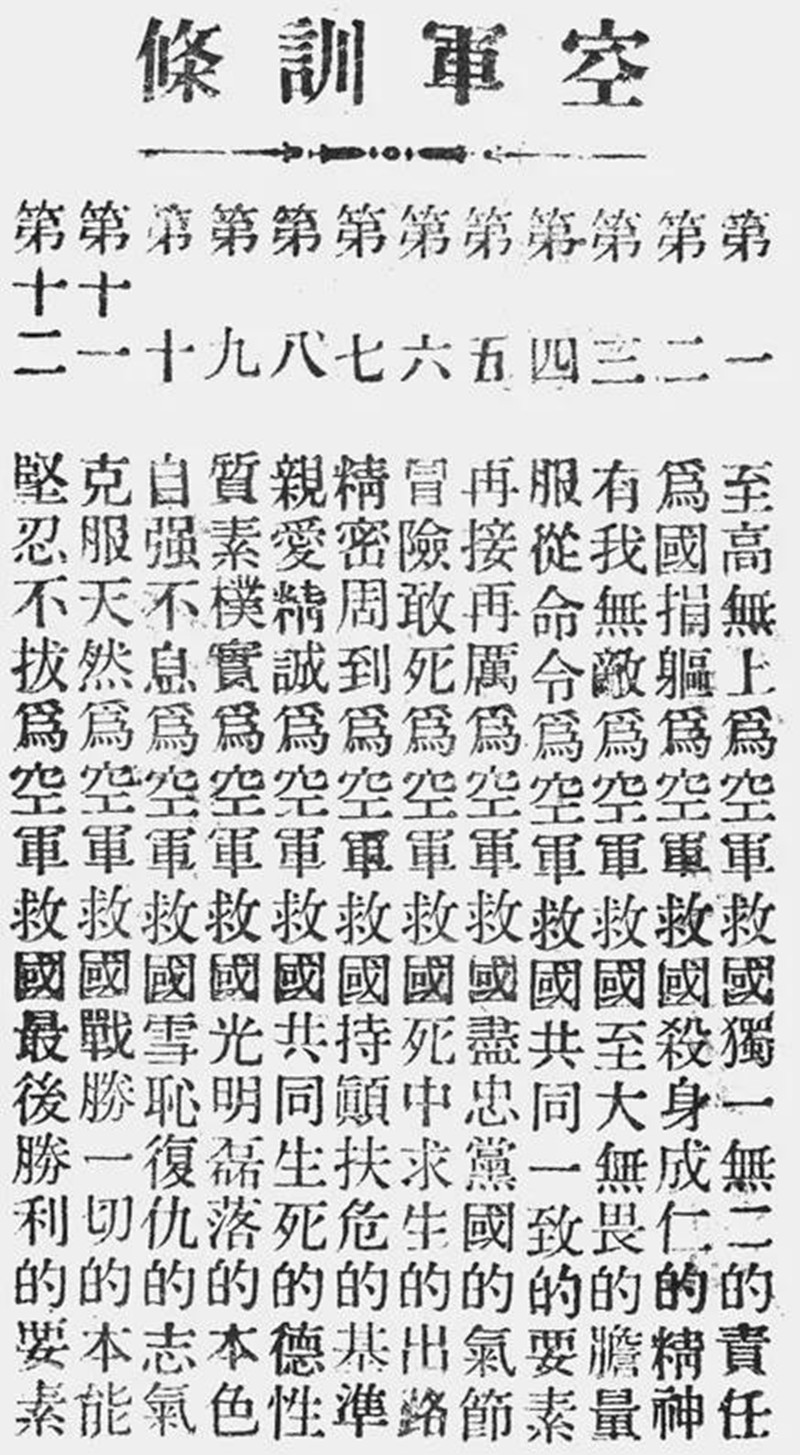 空軍訓條
第一 至高無上爲空軍救國獨一無二的責任
第二 爲國捐軀爲空軍救國殺身成仁的精神
第三 有我無敵爲空軍救國至大無畏的膽量
第四 服從命令爲空軍救國共同一致的要素
第五 再接再厲爲空軍救國盡忠黨國的氣節
第六 冒險敢死爲空軍救國死中求生的出路
第七 精密周到爲空軍救國持顚扶危的基準
第八 親愛精誠爲空軍救國共同生死的德性
第九 質素樸實爲空軍救國光明磊落的本色
第十 自强不息爲空軍救國雪恥復仇的志氣
第十一 克服天然爲空軍救國戰勝一切的本能
第十二 堅忍不拔爲空軍救國最後勝利的要素